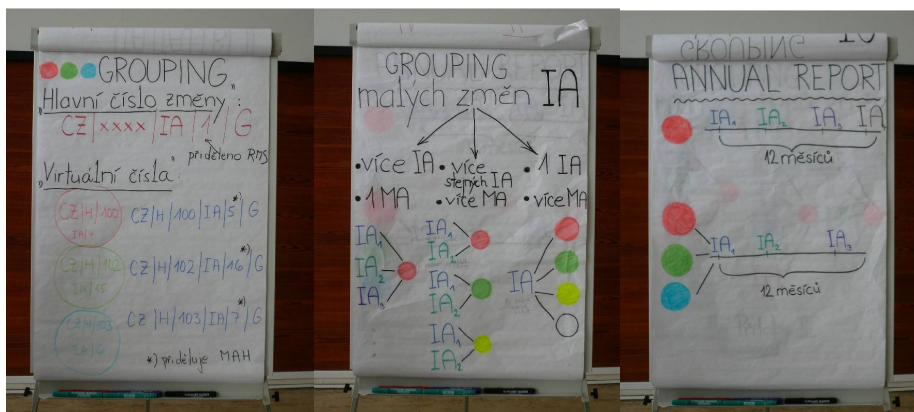 GROUPING
"Hlavní číslo změny":
CZ|xxxx|IA|1|G
přiděleno RMS
"Virtuální čísla":
CZ|H|100
CZ|H|100|IA|5*)|G
CZ|H|102
IA|15
CZ|H|102|IA|16*)|G
CZ|H|103
IA|6
CZ|H|103|IA|7*)|G
*) přiděluje MAH
GROUPING
malých změn IA
• více IA
• 1 MA
• více stejných IA
• více MA
• 1 IA
• více MA
IA1
IA2
IA3
IA1
IA2
IA1
IA2
IA1
IA2
IA
ANNUAL REPORT
IA1 IA2 IA3 IA4
12 měsíců
IA1 IA2 IA3
12 měsíců